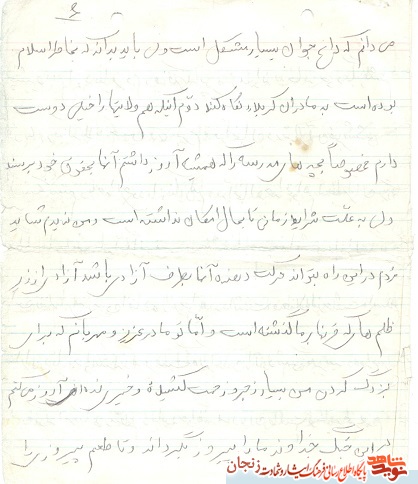 ۶
می دانم که داغ جوان بسیار مشکل است ولی باید بدانید که بخاطر اسلام
بوده است به مادران کربلا نگاه کنند دوّم اینکه هم ولایتیها را خیلی دوست
دارم خصوصاً بچه های مدرسه را که همیشه آرزو داشتم آنها بحقوق خود برسند
ولی به علّت شرایط زمان تا بحال امکان نداشته است و خون شاید
مردم در این راه بتواند حرکت دهنده آنها بطرف آزادی باشد آزادی از زیر
ظلم هائی که قرنها بر ما گذشته است و امّا تو مادر عزیز و مهربانم که برای
بزرگ کردن من بسیار زجر و زحمت کشیدهٔ و خیری ندیدی آرزو می کنم
در این جنگ خداوند ما را پیروز بگرداند و تا طعم پیروزی را
نوید شاهد
پایگاه اطلاع رسانی فرهنگ ایثار و شهادت زنجان